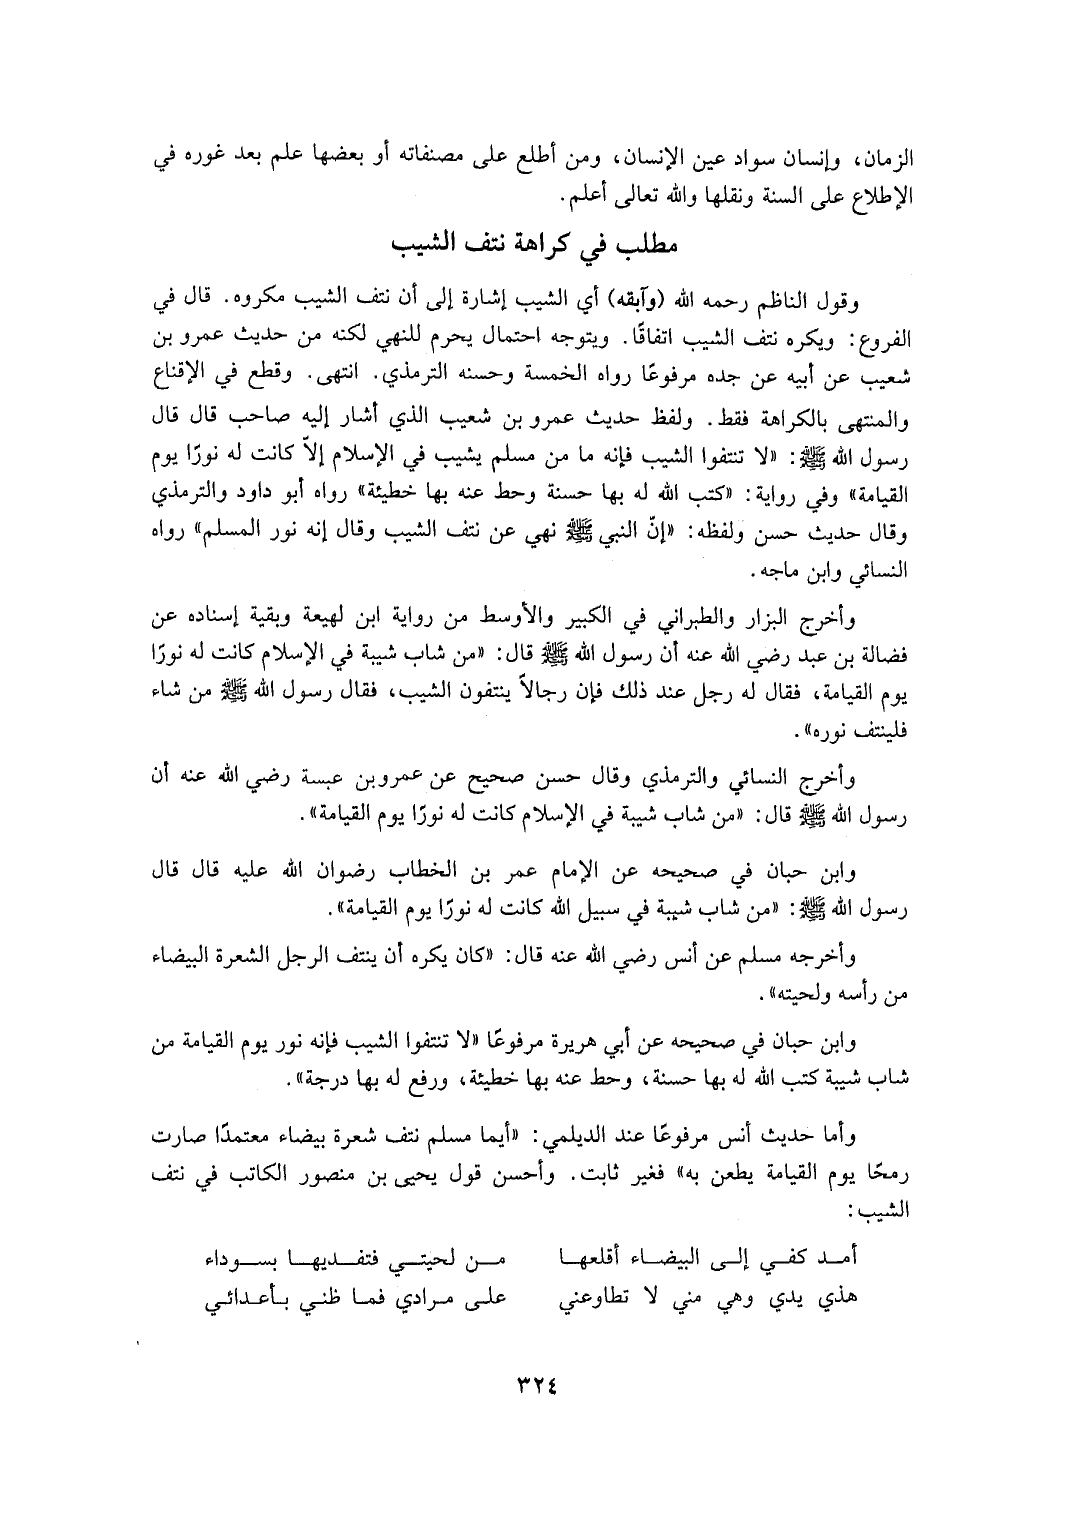 الزمان، وإنسان سواد عين الإنسان، ومن أطلع على مصنفاته أو بعضها علم بعد غوره في
الإطلاع على السنة ونقلها والله تعالى أعلم.
مطلب في كراهة نتف الشيب
وقول الناظم رحمه الله (وآبقه) أي الشيب إشارة إلى أن نتف الشيب مكروه. قال في
الفروع: ويكره نتف الشيب اتفاقًا. ويتوجه احتمال يحرم للنهي لكنه من حديث عمرو بن
شعيب عن أبيه عن جده مرفوعًا رواه الخمسة وحسنه الترمذي. انتهى. وقطع في الإقناع
والمنتهى بالكراهة فقط. ولفظ حديث عمرو بن شعيب الذي أشار إليه صاحب قال قال
رسول الله ﷺ: «لا تنتفوا الشيب فإنه ما من مسلم يشيب في الإسلام إلاّ كانت له نورًا يوم
القيامة» وفي رواية: «كتب الله له بها حسنة وحط عنه بها خطيئة» رواه أبو داود والترمذي
وقال حديث حسن ولفظه: «إنّ النبي ﷺ نهي عن نتف الشيب وقال إنه نور المسلم» رواه
النسائي وابن ماجه.
وأخرج البزار والطبراني في الكبير والأوسط من رواية ابن لهيعة وبقية إسناده عن
فضالة بن عبد رضي الله عنه أن رسول الله ﷺ قال: «من شاب شيبة في الإسلام كانت له نورًا
يوم القيامة، فقال له رجل عند ذلك فإن رجالاً ينتفون الشيب، فقال رسول الله ﷺ من شاء
فلينتف نوره».
وأخرج النسائي والترمذي وقال حسن صحيح عن عمرو بن عبسة رضي الله عنه أن
رسول الله ﷺ قال: «من شاب شيبة في الإسلام كانت له نورًا يوم القيامة».
وابن حبان في صحيحه عن الإمام عمر بن الخطاب رضوان الله عليه قال قال
رسول الله ﷺ: «من شاب شيبة في سبيل الله كانت له نورًا يوم القيامة».
وأخرجه مسلم عن أنس رضي الله عنه قال: «كان يكره أن ينتف الرجل الشعرة البيضاء
من رأسه ولحيته».
وابن حبان في صحيحه عن أبي هريرة مرفوعًا «لا تنتفوا الشيب فإنه نور يوم القيامة من
شاب شيبة كتب الله له بها حسنة، وحط عنه بها خطيئة، ورفع له بها درجة».
وأما حديث أنس مرفوعًا عند الديلمي: «أيما مسلم نتف شعرة بيضاء معتمدًا صارت
رمحًا يوم القيامة يطعن به» فغير ثابت. وأحسن قول يحيى بن منصور الكاتب في نتف
الشيب:
أمد كفي إلى البيضاء أقلعها من لحيتي فتفديها بسوداء
هذي يدي وهي مني لا تطاوعني على مرادي فما ظني بأعدائي
٣٢٤